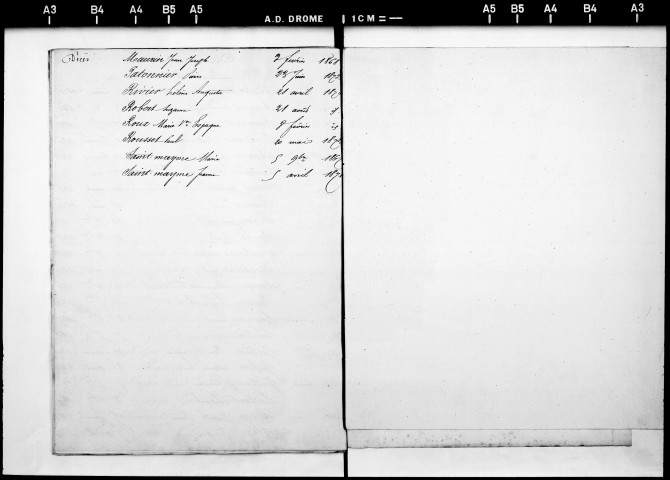 A3 B4 A4 B5 A5 A.D. DROME 1CM = A5 B5 A4 B4 A3
Décès Maurin Jean Joseph 2 février 186
Patonnier 22 Juin 187
Rivier Hélène Augustine 21 avril 187
Robert Suzanne 21 août
Roux Marie Vve Espagne 8 février
Rousset Paul 20 mai 187
Saint mayme Marie 5 9bre 186
Saint mayme Jeanne 5 avril 187